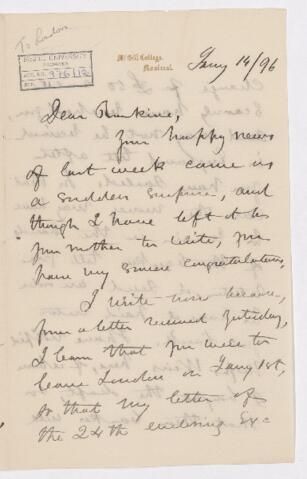 To London
McGill College,
Montreal.
Jany 14/96
Dear
Your happy news
of last week came as
a sudden surprise, and
though I have left it to
your mother to write, you
have my sincere congratulations.
I write now because,
from a letter received yesterday,
I learn that you were to
leave London on Jany 1st,
so that my letter of
the 24th enclosing Ex=